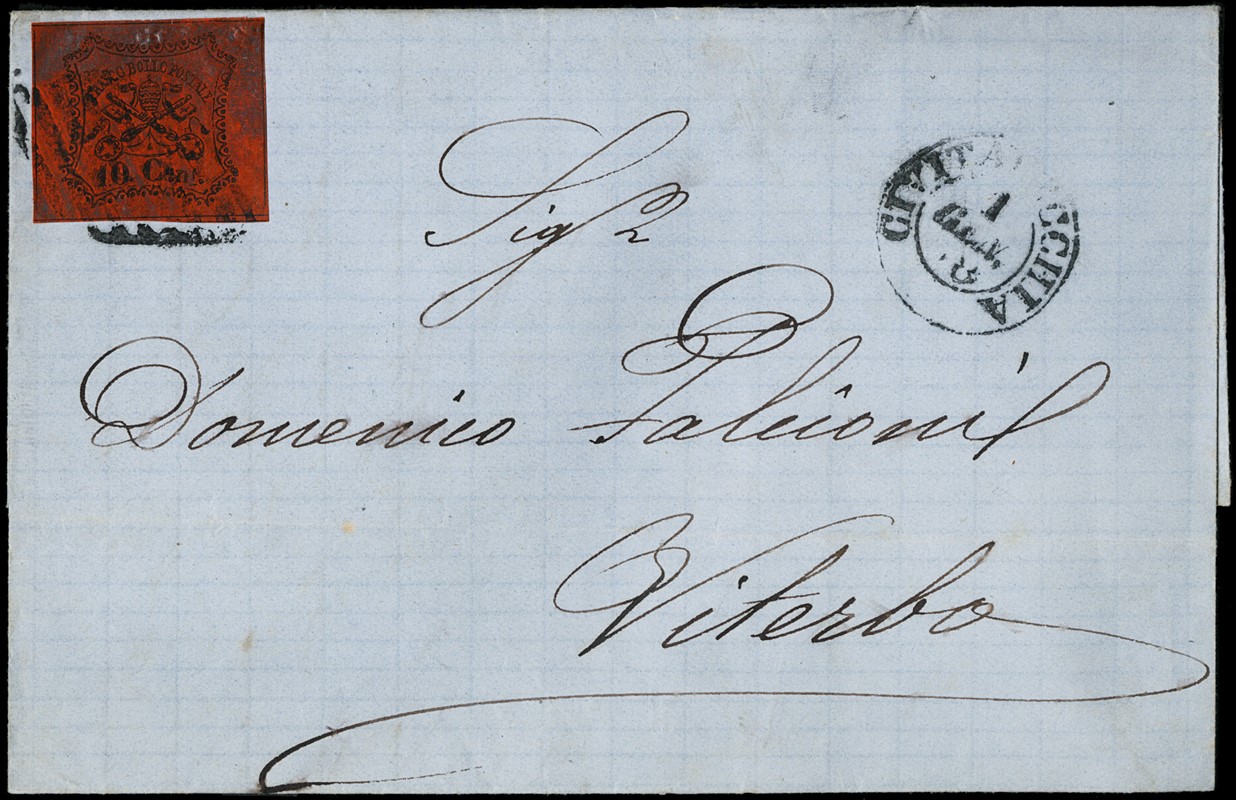 FRANCO BOLLO POSTALE
10. Cent.
CIVITAVECCHIA
1
Sig
Domenico Falcioni
Viterbo